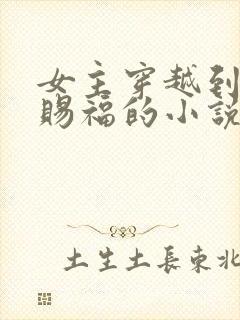 女主穿越到
賜福的小說
土生土長東北